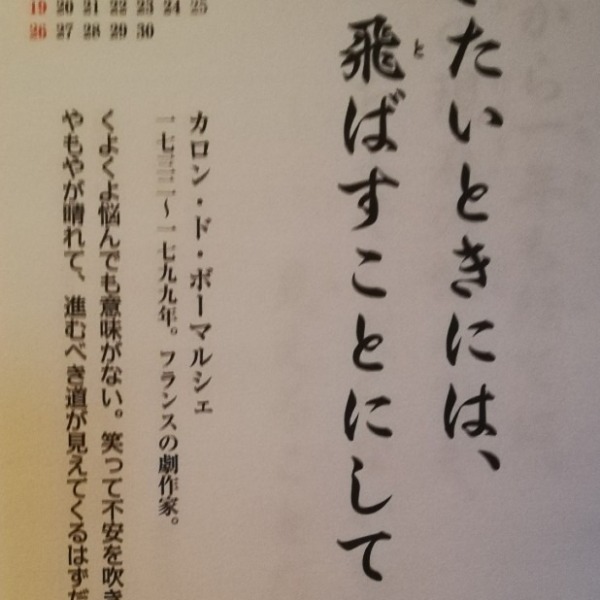 たいときには、
飛ばすことにして
と
カロン・ド・ボーマルシェ
一七三二〜一七九九年。フランスの劇作家。
くよくよ悩んでも意味がない。笑って不安を吹き
やもやが晴れて、進むべき道が見えてくるはずだ
19 20 21 22 23 24 25
26 27 28 29 30